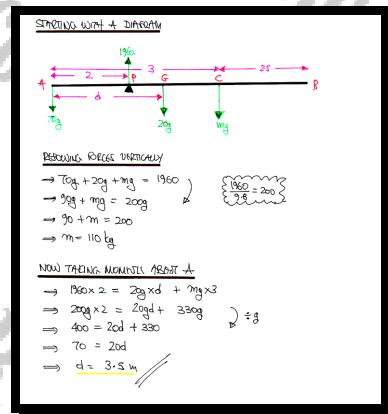 STARTING WITH A DIAGRAM
1960
2 3 25
A P G C B
d
70g 20g mg
RESOLVING FORCES VERTICALLY
⇒ 70g + 20g + mg = 1960
⇒ 90g + mg = 200g
⇒ 90 + m = 200
⇒ m = 110 kg
1960/9.8 = 200
NOW TAKING MOMENTS ABOUT A
⇒ 1960 × 2 = 20g × d + mg × 3
⇒ 200g × 2 = 20gd + 330g
÷ g
⇒ 400 = 20d + 330
⇒ 70 = 20d
⇒ d = 3.5 m